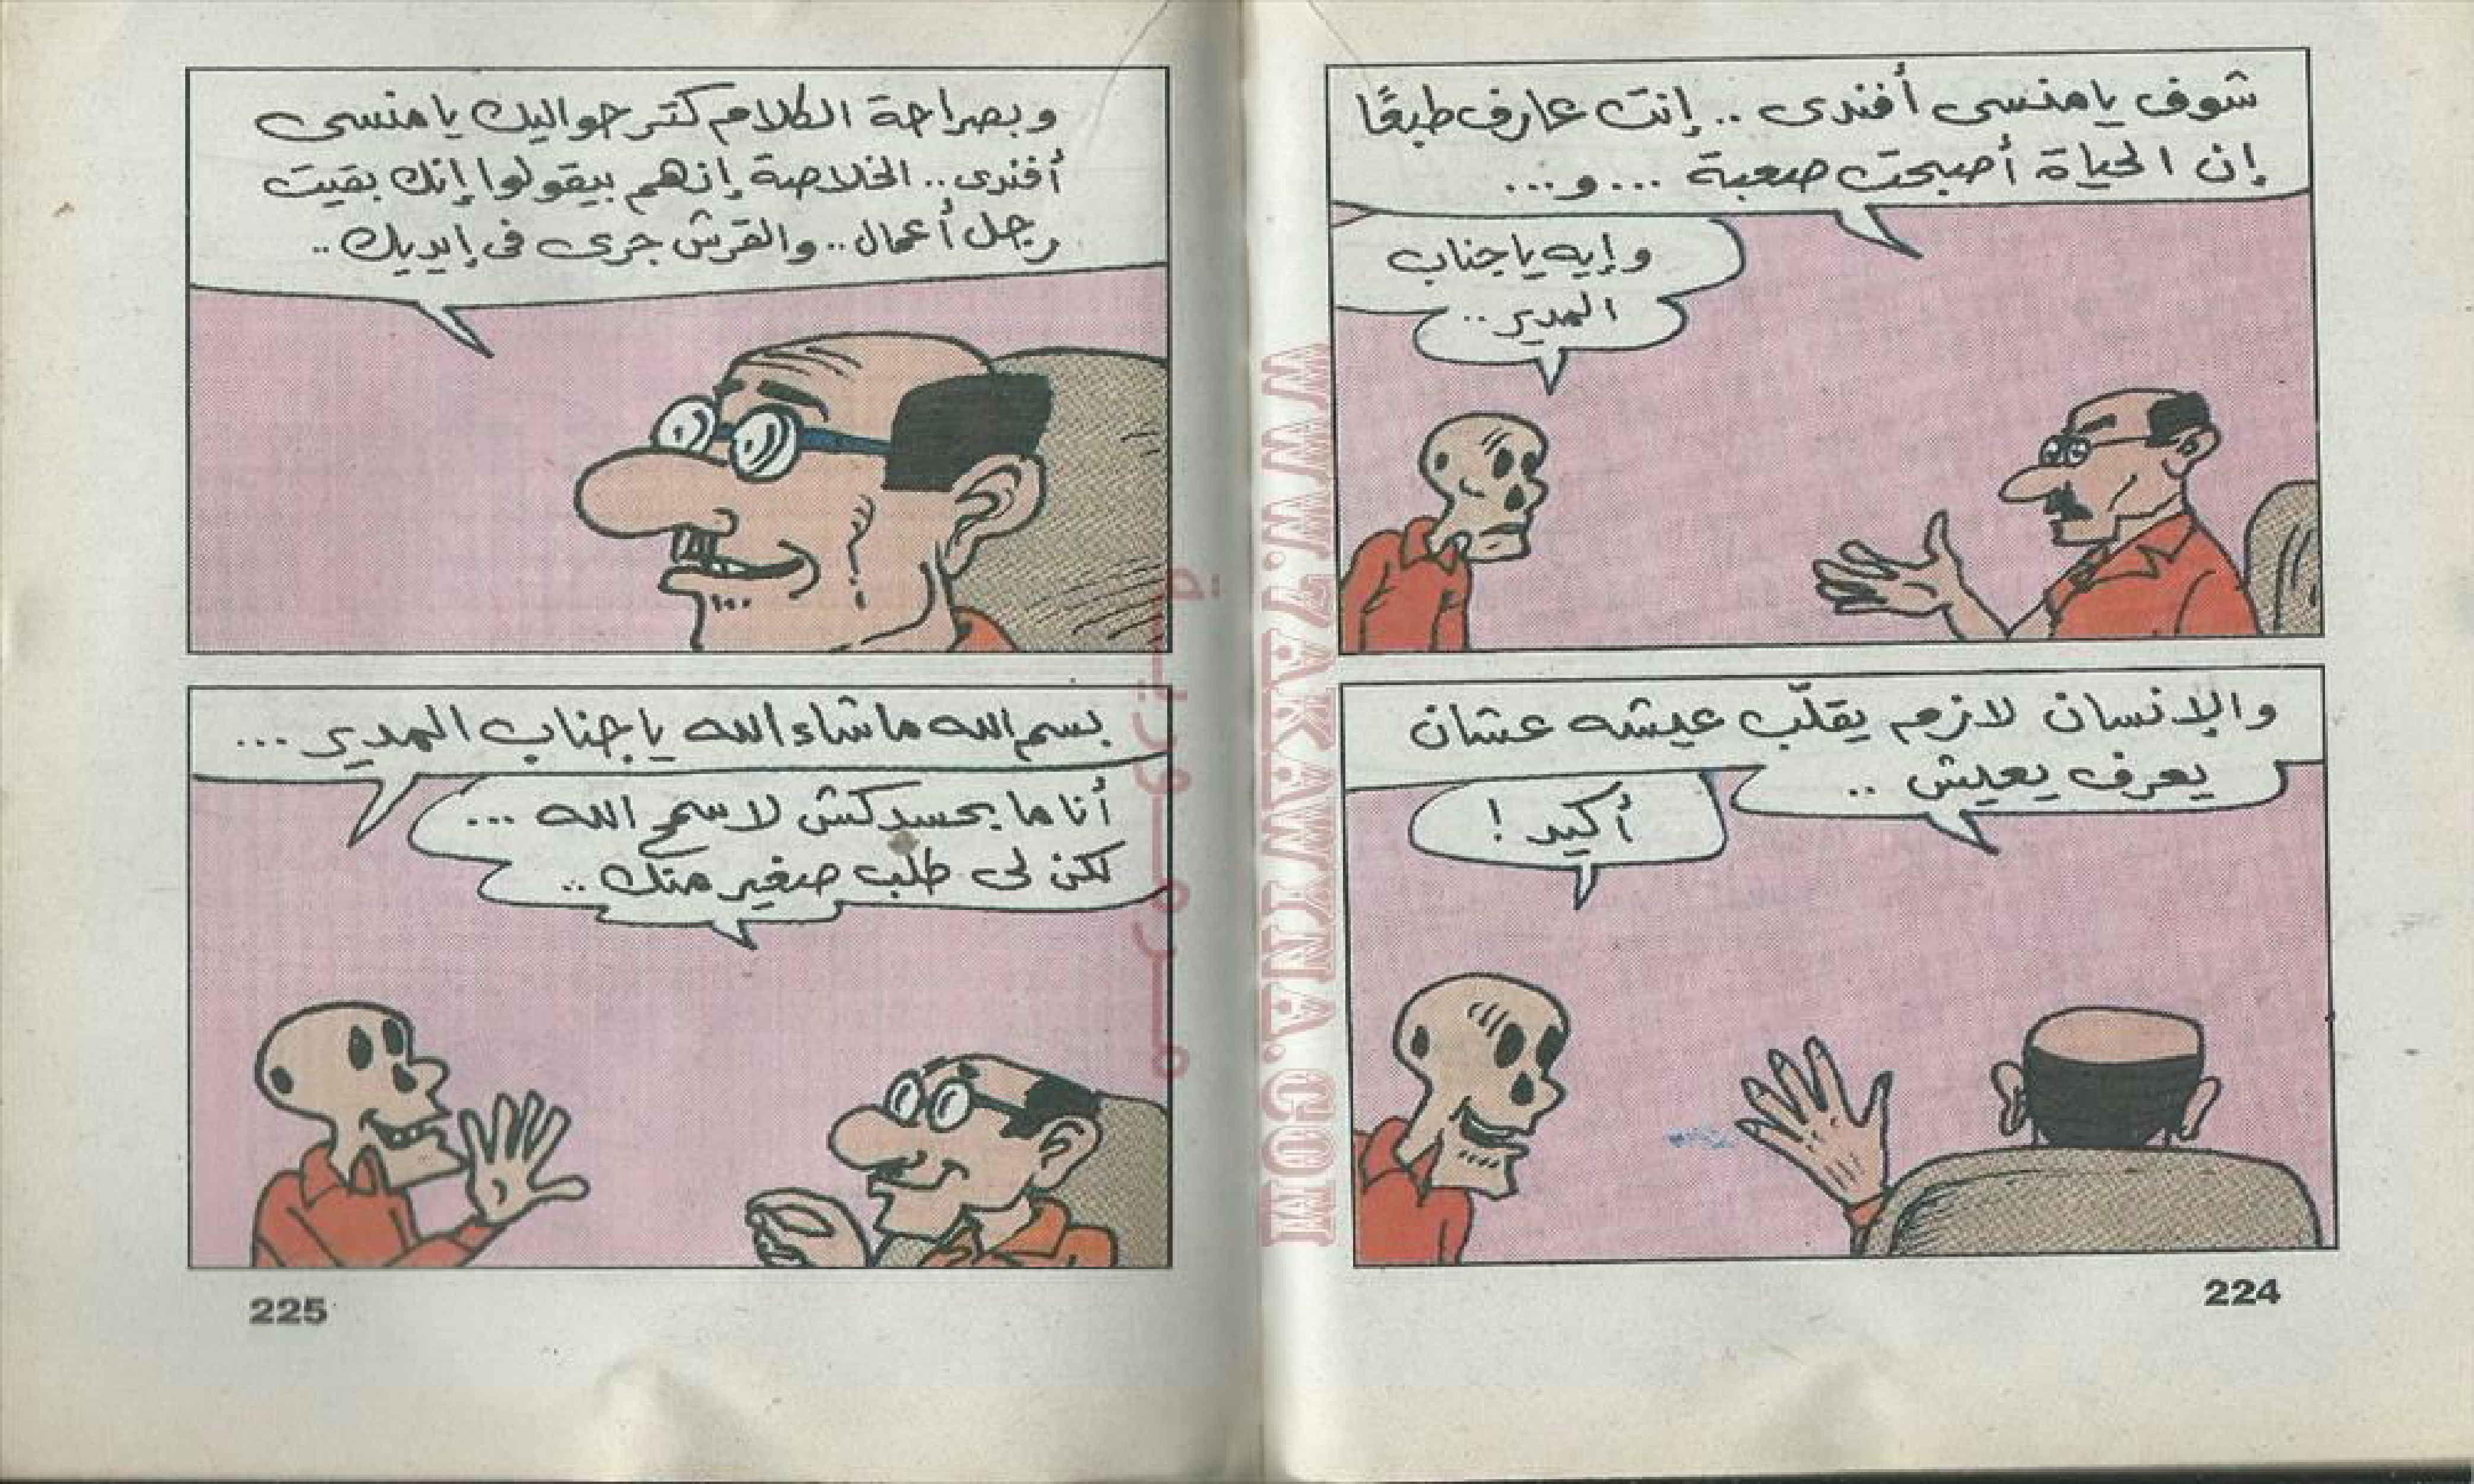 شوف يا منسى أفندى .. إنت عارف طبعًا
إن الحياة أصبحت صعبة ... و...
وإيه يا جناب
المدير ..
والإنسان لازم يقلّب عيشه عشان
يعرف يعيش ..
أكيد !
224
وبصراحة الكلام كتر حواليك يا منسى
أفندى .. الخلاصة إنهم بيقولوا إنك بقيت
رجل أعمال .. والقرش جرى فى إيديك ..
بسم الله ما شاء الله يا جناب المدير ...
أنا ما بحسدكش لا سمح الله ...
لكن لى طلب صغير منك ..
225
WWW.ZAKAWKINA.COM